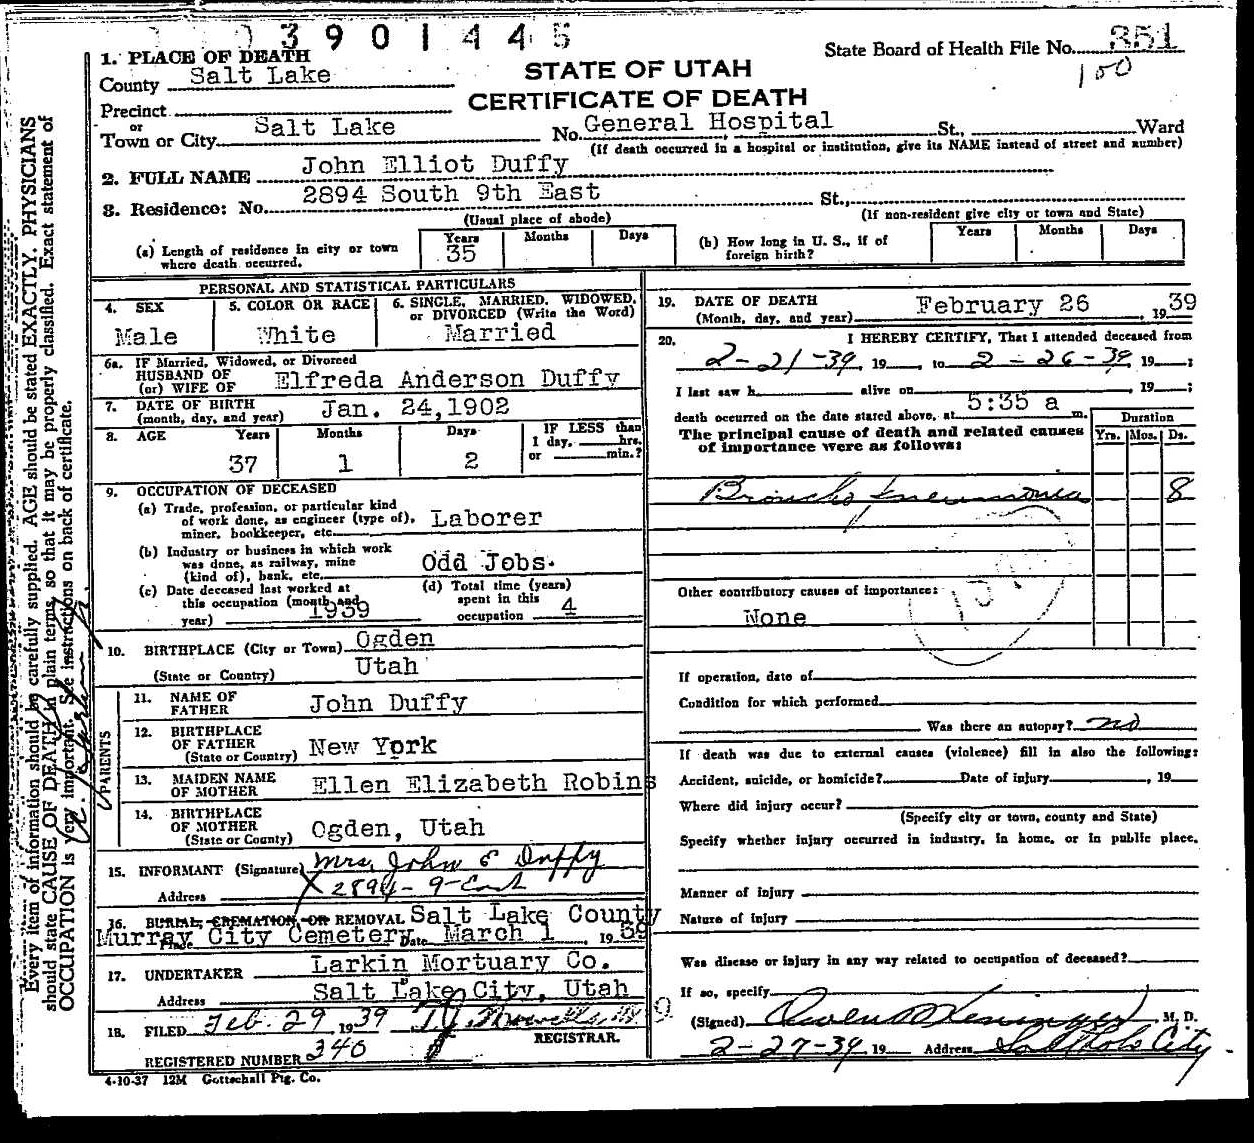 3901445
State Board of Health File No. 351
100
1. PLACE OF DEATH
County Salt Lake
STATE OF UTAH
CERTIFICATE OF DEATH
Precinct
or
Town or City Salt Lake No. General Hospital St., Ward
(If death occurred in a hospital or institution, give its NAME instead of street and number)
2. FULL NAME John Elliot Duffy
3. Residence: No. 2894 South 9th East St.,
(Usual place of abode) (If non-resident give city or town and State)
(a) Length of residence in city or town where death occurred. Years 35 Months Days
(b) How long in U. S., if of foreign birth? Years Months Days
PERSONAL AND STATISTICAL PARTICULARS
4. SEX Male
5. COLOR OR RACE White
6. SINGLE, MARRIED, WIDOWED, or DIVORCED (Write the Word) Married
6a. IF Married, Widowed, or Divorced
HUSBAND OF
(or) WIFE OF Elfreda Anderson Duffy
7. DATE OF BIRTH
(month, day, and year) Jan. 24,1902
8. AGE Years 37 Months 1 Days 2
IF LESS than
1 day, hrs.
or min.?
9. OCCUPATION OF DECEASED
(a) Trade, profession, or particular kind
of work done, as engineer (type of),
miner, bookkeeper, etc. Laborer
(b) Industry or business in which work
was done, as railway, mine
(kind of), bank, etc. Odd Jobs.
(c) Date deceased last worked at
this occupation (month and
year) 1939
(d) Total time (years)
spent in this
occupation 4
10. BIRTHPLACE (City or Town) Ogden
(State or Country) Utah
PARENTS
11. NAME OF
FATHER John Duffy
12. BIRTHPLACE
OF FATHER
(State or Country) New York
13. MAIDEN NAME
OF MOTHER Ellen Elizabeth Robins
14. BIRTHPLACE
OF MOTHER
(State or County) Ogden, Utah
15. INFORMANT (Signature) Mrs. John E Duffy
Address X 2894 - 9 - East
16. BURIAL, CREMATION, OR REMOVAL Salt Lake County
Place Murray City Cemetery Date March 1, 1939
17. UNDERTAKER Larkin Mortuary Co.
Address Salt Lake City, Utah
18. FILED Feb. 29 1939
REGISTRAR.
REGISTERED NUMBER 340
4-10-37 12M Gottschall Ptg. Co.
19. DATE OF DEATH
(Month, day, and year) February 26, 1939
20. I HEREBY CERTIFY, That I attended deceased from
2-21-39, 19 to 2-26-39, 19 ;
I last saw h alive on , 19 ;
death occurred on the date stated above, at 5:35 a m.
The principal cause of death and related causes
of importance were as follows:
Duration
Yrs. Mos. Ds.
Broncho pneumonia 8
Other contributory causes of importance:
None
If operation, date of
Condition for which performed
Was there an autopsy? no
If death was due to external causes (violence) fill in also the following:
Accident, suicide, or homicide? Date of injury , 19
Where did injury occur?
(Specify city or town, county and State)
Specify whether injury occurred in industry, in home, or in public place.
Manner of injury
Nature of injury
Was disease or injury in any way related to occupation of deceased?
If so, specify
(Signed) , M. D.
2-27-39 19 Address Salt Lake City
Every item of information should be carefully supplied. AGE should be stated EXACTLY. PHYSICIANS
should state CAUSE OF DEATH in plain terms, so that it may be properly classified. Exact statement of
OCCUPATION is very important. See instructions on back of certificate.